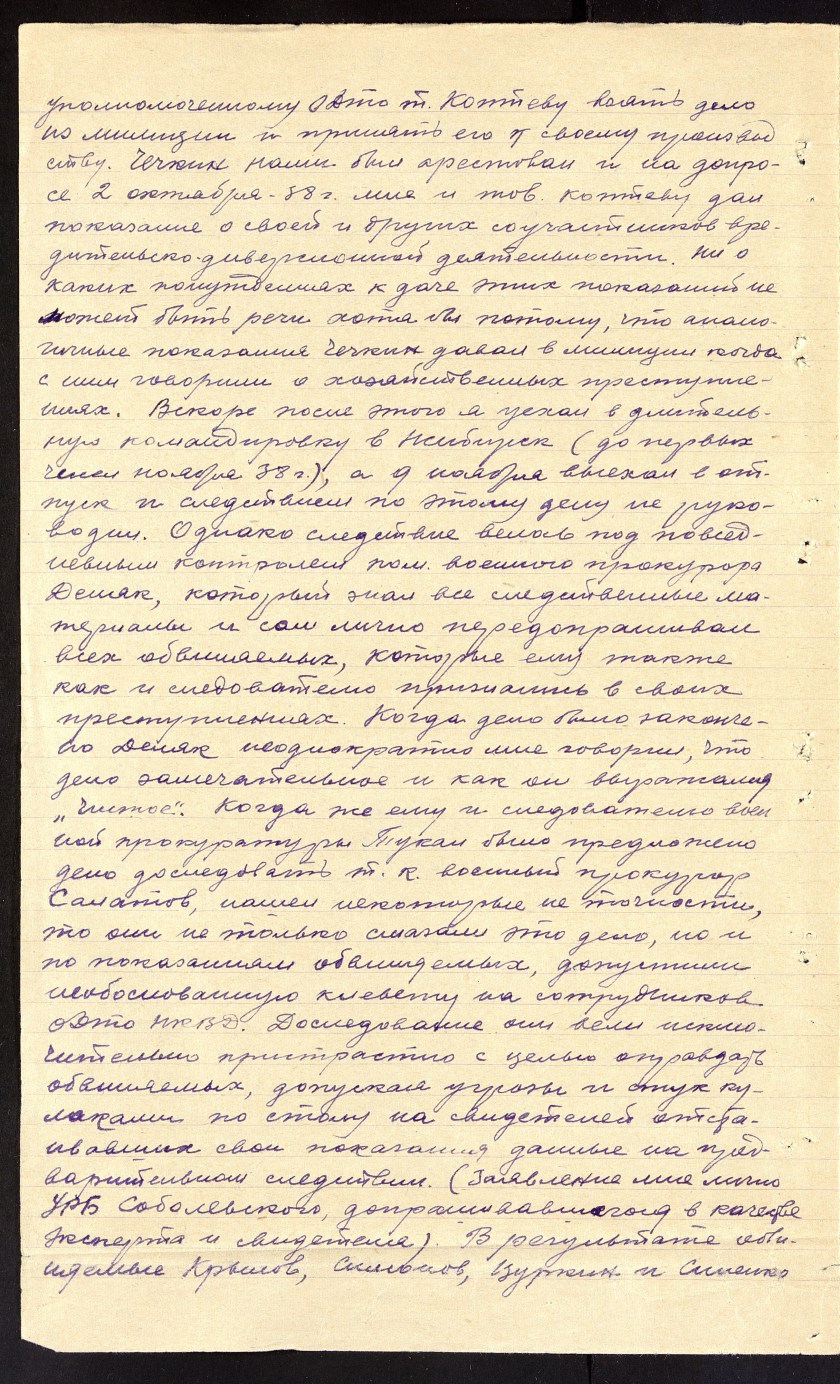 уполномоченному ОДТО т. Коптеву взять дело
из милиции и принять его к своему производ
ству. Чечкин нами был арестован и на допро-
се 2 октября-38 г. мне и тов. Коптеву дал
показание о своей и других соучастников вре-
дительско-диверсионной деятельности. Ни о
каких понуждениях к даче этих показаний не
может быть речи хотя бы потому, что анало-
гичные показания Чечкин давал в милиции когда
с ним говорили о хозяйственных преступле-
ниях. Вскоре после этого я уехал в длитель-
ную командировку в (до первых
чисел ноября 38 г.), а 9 ноября выехал в от-
пуск и следствием по этому делу не руко-
водил. Однако следствие велось под повсед-
невным контролем пом. военного прокурора
Деняк, который знал все следственные ма-
териалы и сам лично передопрашивал
всех обвиняемых, которые ему также
как и следователю признались в своих
преступлениях. Когда дело было законче-
но Деняк неоднократно мне говорил, что
дело замечательное и как он выражался
„Чистое“. Когда же ему и следователю воен
ной прокуратуры Тукал было предложено
дело доследовать т. к. военный прокурор
Салатов, нашел некоторые не точности,
то они не только смазали это дело, но и
по показаниям обвиняемых, допустили
необоснованную клевету на сотрудников
ОДТО НКВД. Доследование они вели исклю-
чительно пристрастно с целью оправдать
обвиняемых, допуская угрозы и стук ку-
лаками по столу на свидетелей отста-
ивавших свои показания данные на пред-
варительном следствии. (Заявление мне лично
Соболевского, допрашивавшегося в качестве
эксперта и свидетеля). В результате обви-
няемые Крылов, Симонов, Цуркин и Синенко